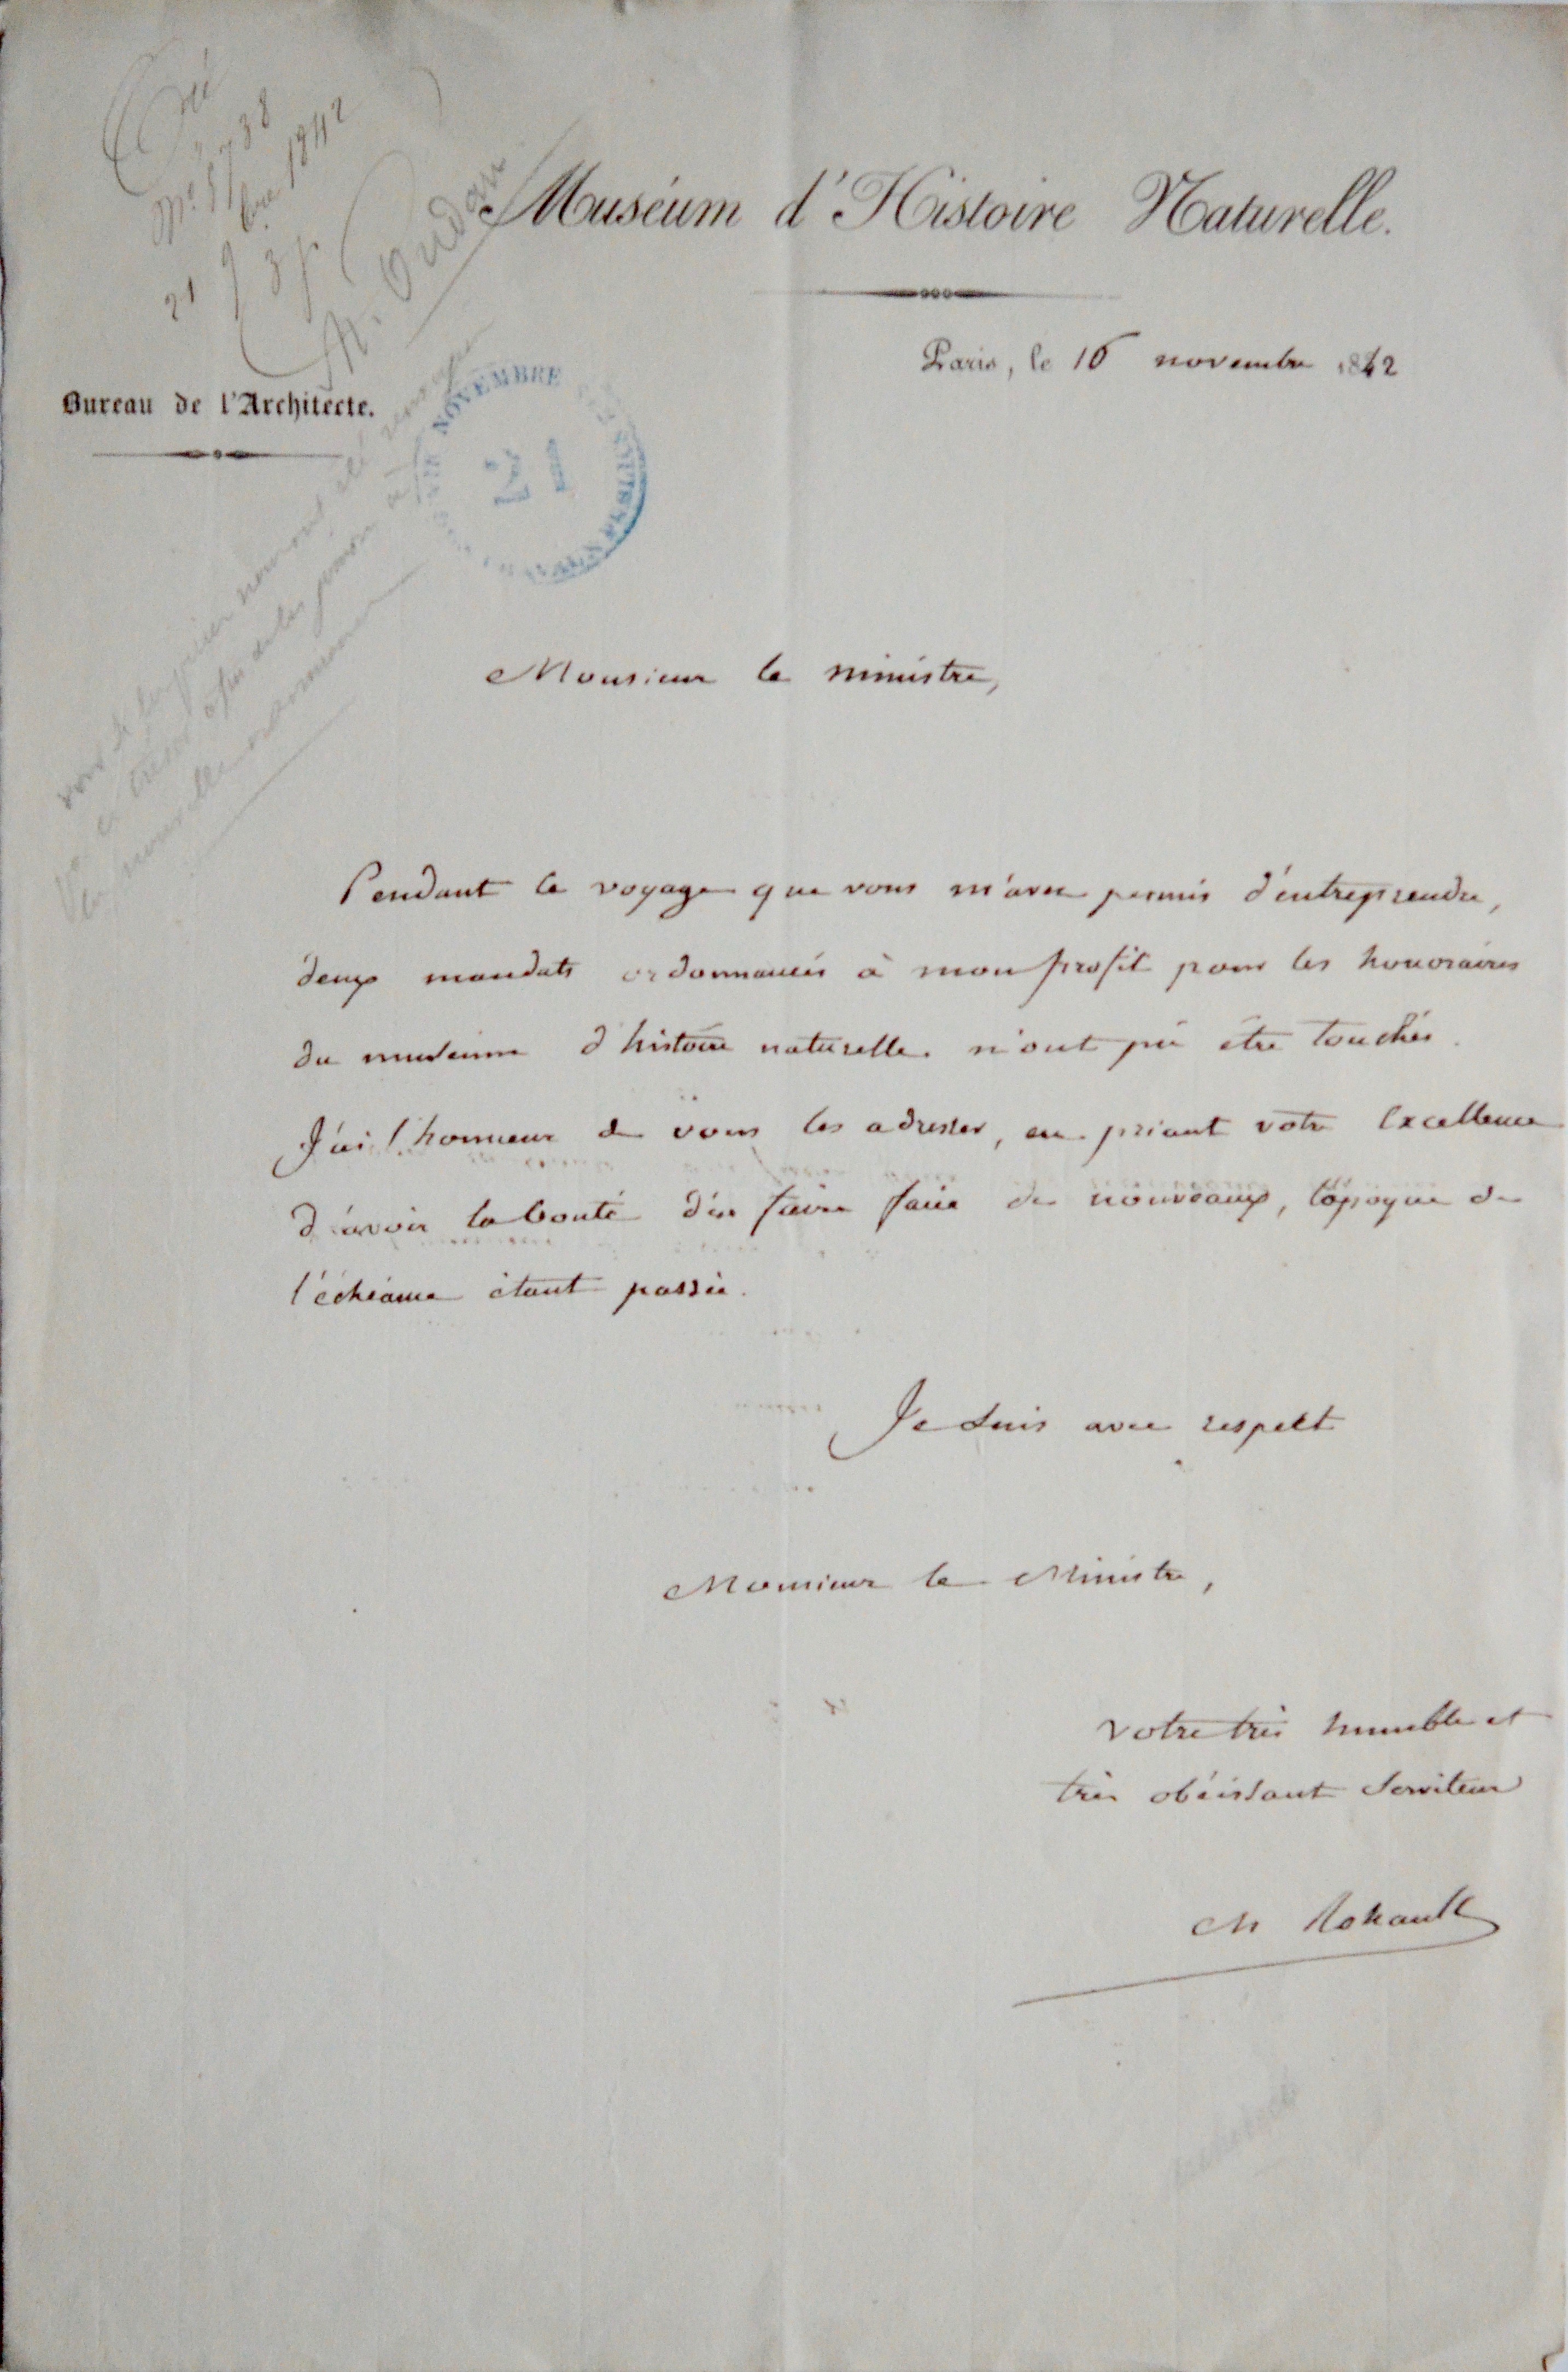 Nº 5738
21 9bre 1842
M. Oudan
Muséum d'Histoire Naturelle.
Paris, le 16 novembre 1842
Bureau de l'Architecte.
NOVEMBRE
21
Monsieur le ministre,
Pendant le voyage que vous m'avez permis d'entreprendre,
deux mandats ordonnancés à mon profit pour les honoraires
du muséum d'histoire naturelle n'ont pû être touchés.
J'ai l'honneur de vous les adresser, en priant votre Excellence
d'avoir la bonté d'en faire faire de nouveaux, l'époque de
l'échéance étant passée.
Je suis avec respect
Monsieur le Ministre,
votre très humble et
très obéissant serviteur
Ch Rohault